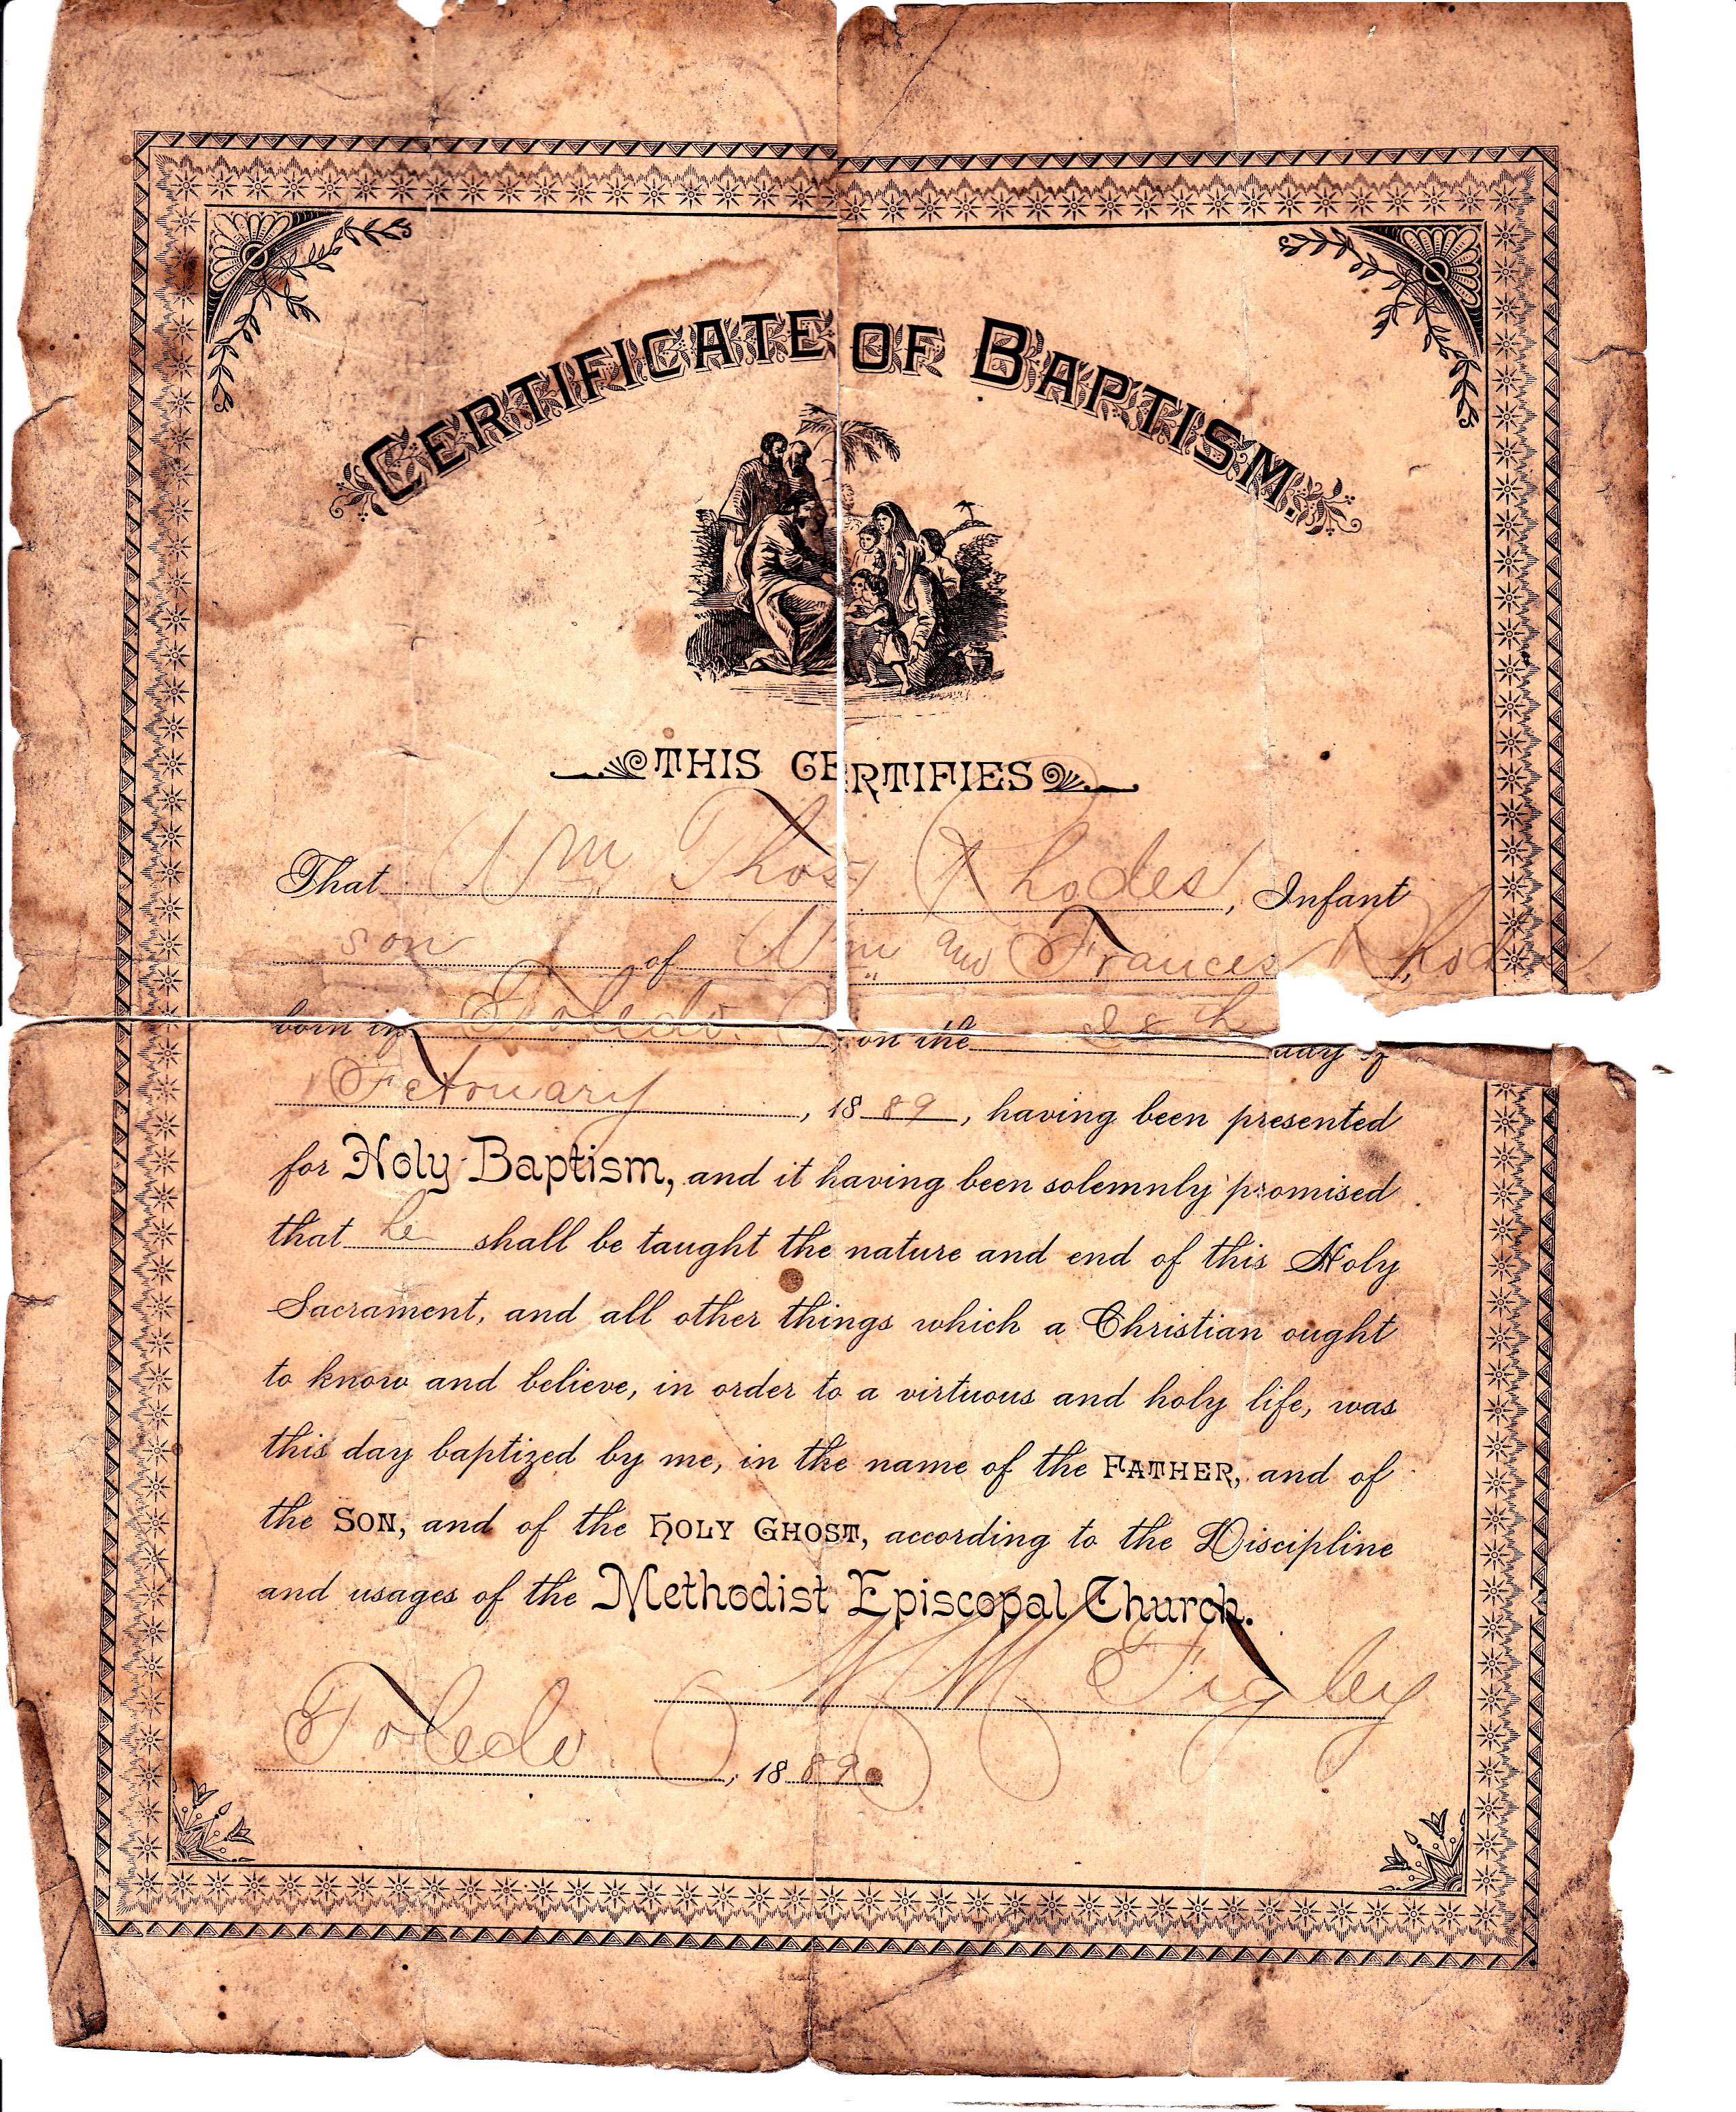 CERTIFICATE OF BAPTISM.
THIS CERTIFIES
That Wm Thos Rhodes, Infant
son of Wm and Frances Rhodes,
born in Toledo. O, on the day of
February, 1889, having been presented
for Holy Baptism, and it having been solemnly promised
that he shall be taught the nature and end of this Holy
Sacrament, and all other things which a Christian ought
to know and believe, in order to a virtuous and holy life, was
this day baptized by me, in the name of the FATHER, and of
the SON, and of the HOLY GHOST, according to the Discipline
and usages of the Methodist Episcopal Church.
W M
Toledo O, 1889.